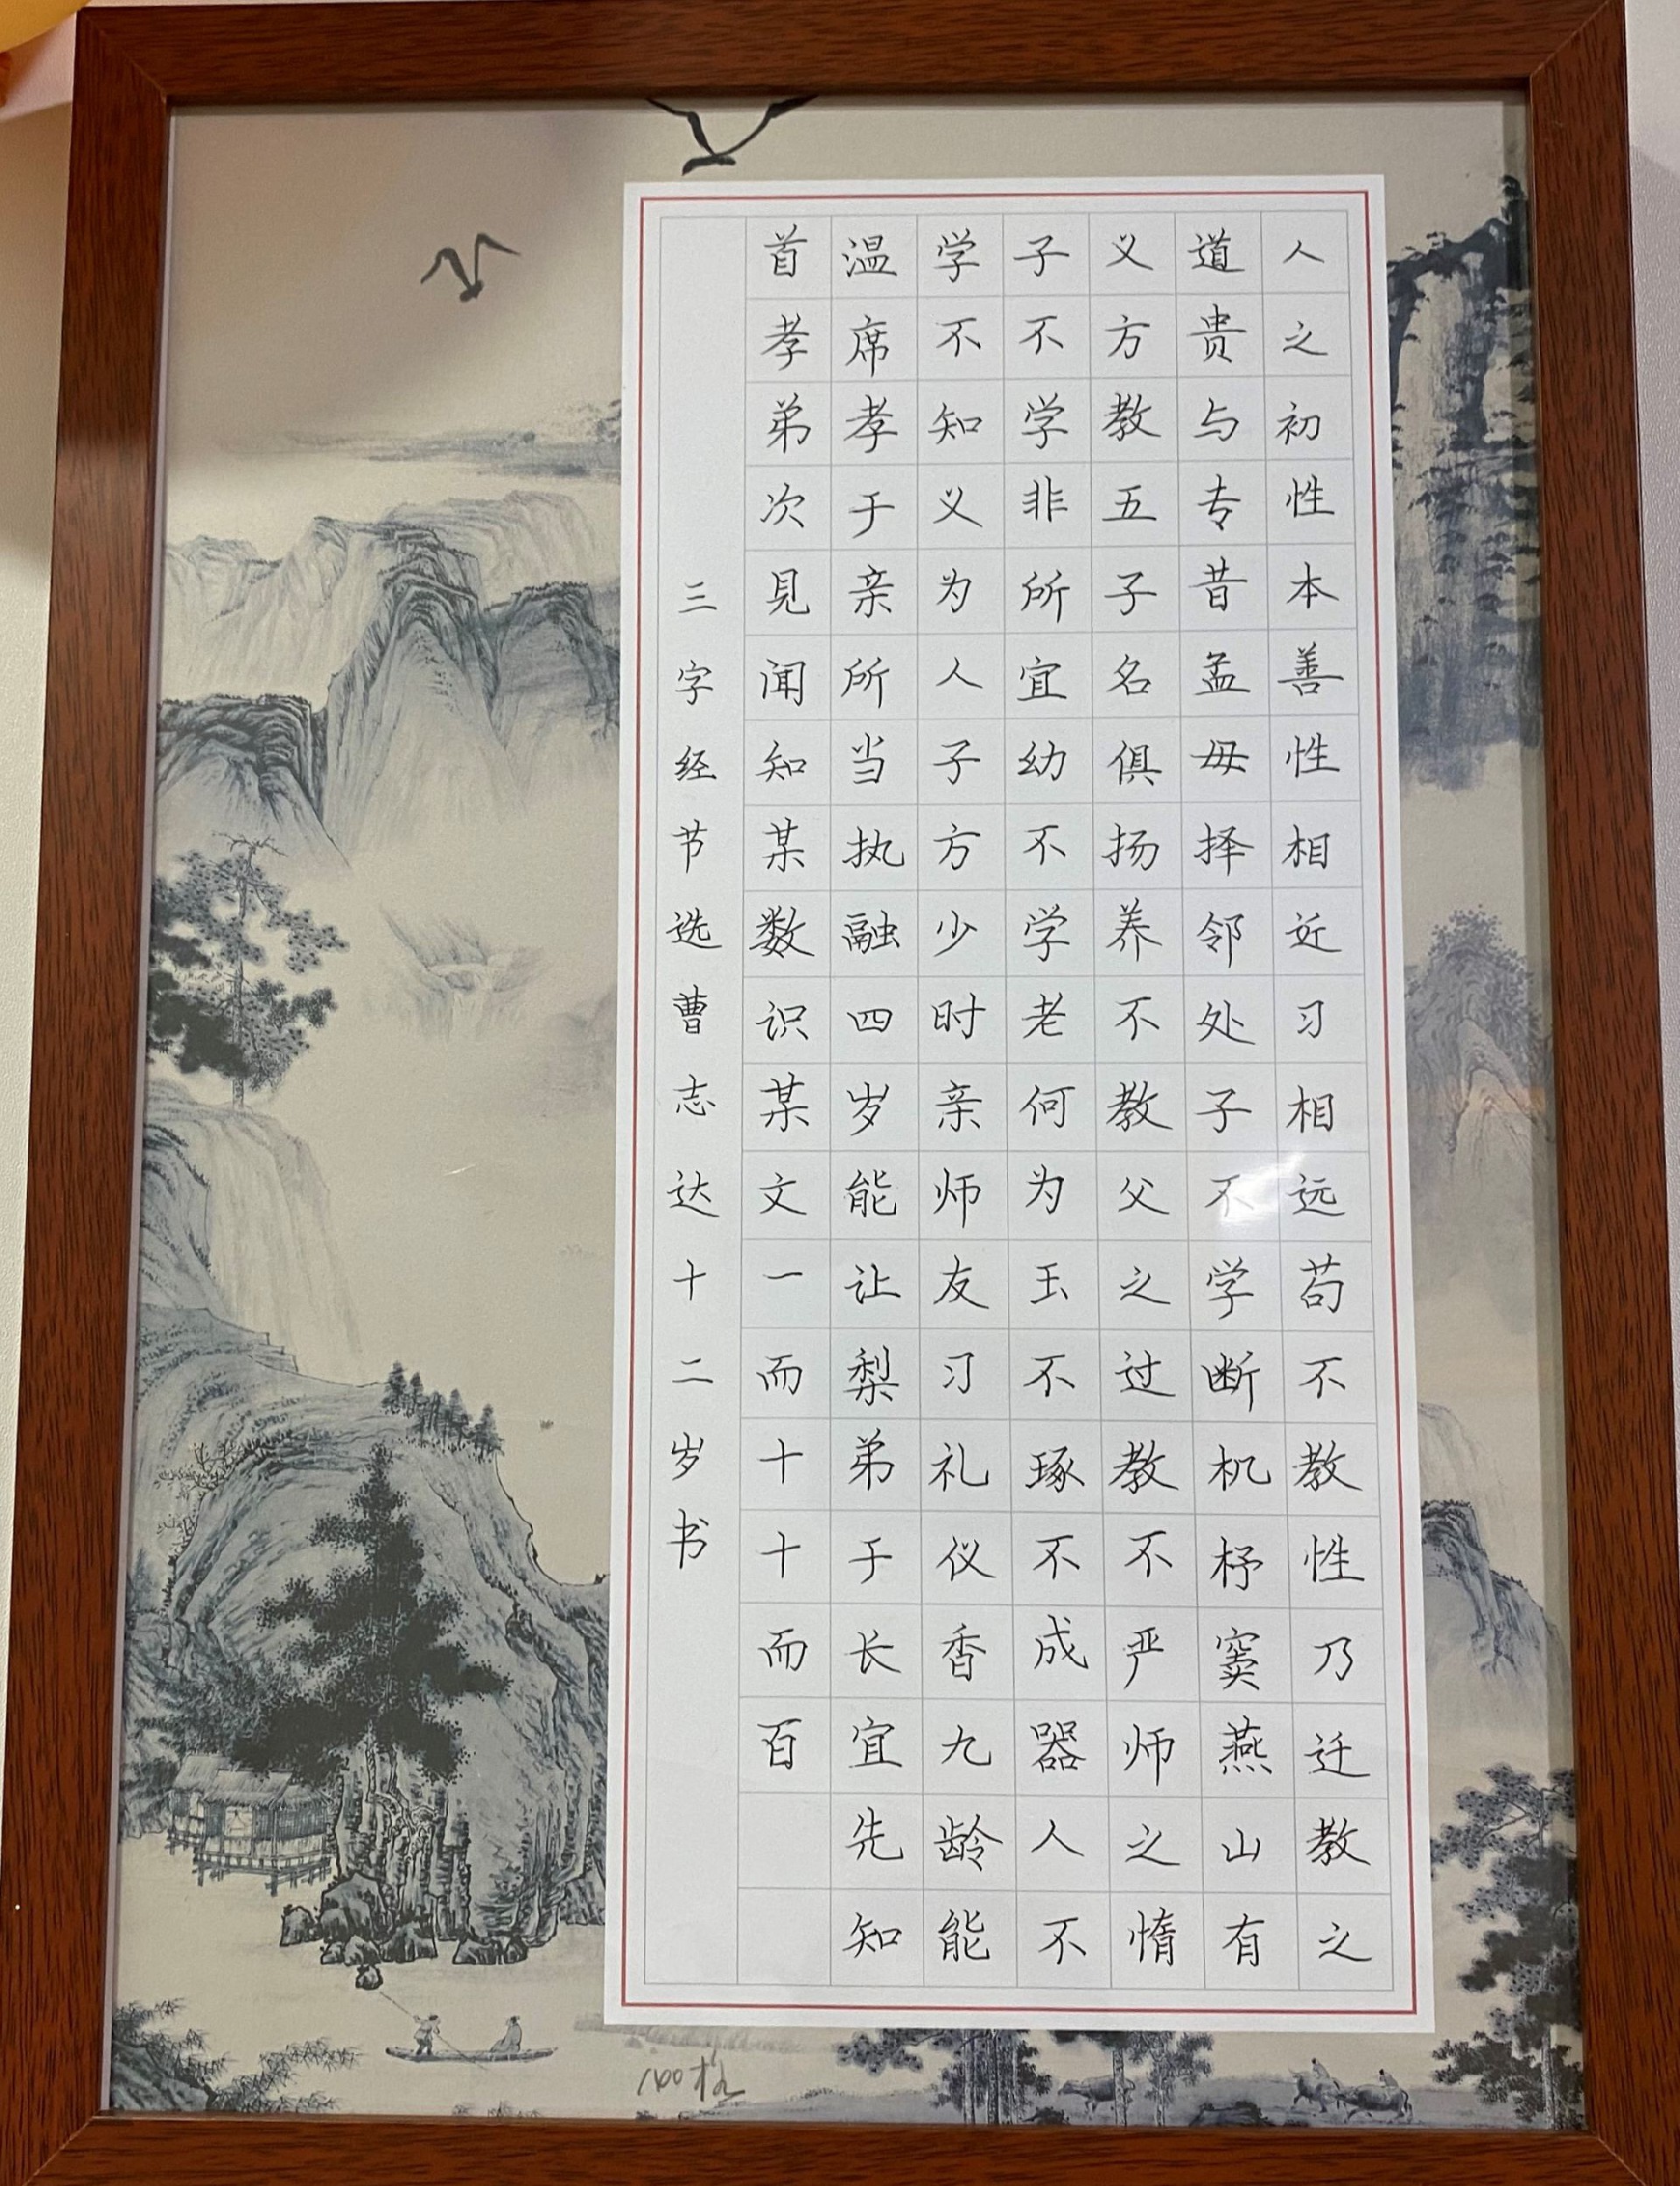 人之初性本善性相近习相远苟不教性乃迁教之
道贵与专昔孟母择邻处子不学断机杼窦燕山有
义方教五子名俱扬养不教父之过教不严师之惰
子不学非所宜幼不学老何为玉不琢不成器人不
学不知义为人子方少时亲师友习礼仪香九龄能
温席孝于亲所当执融四岁能让梨弟于长宜先知
首孝弟次见闻知某数识某文一而十十而百
三字经节选曹志达十二岁书
140格